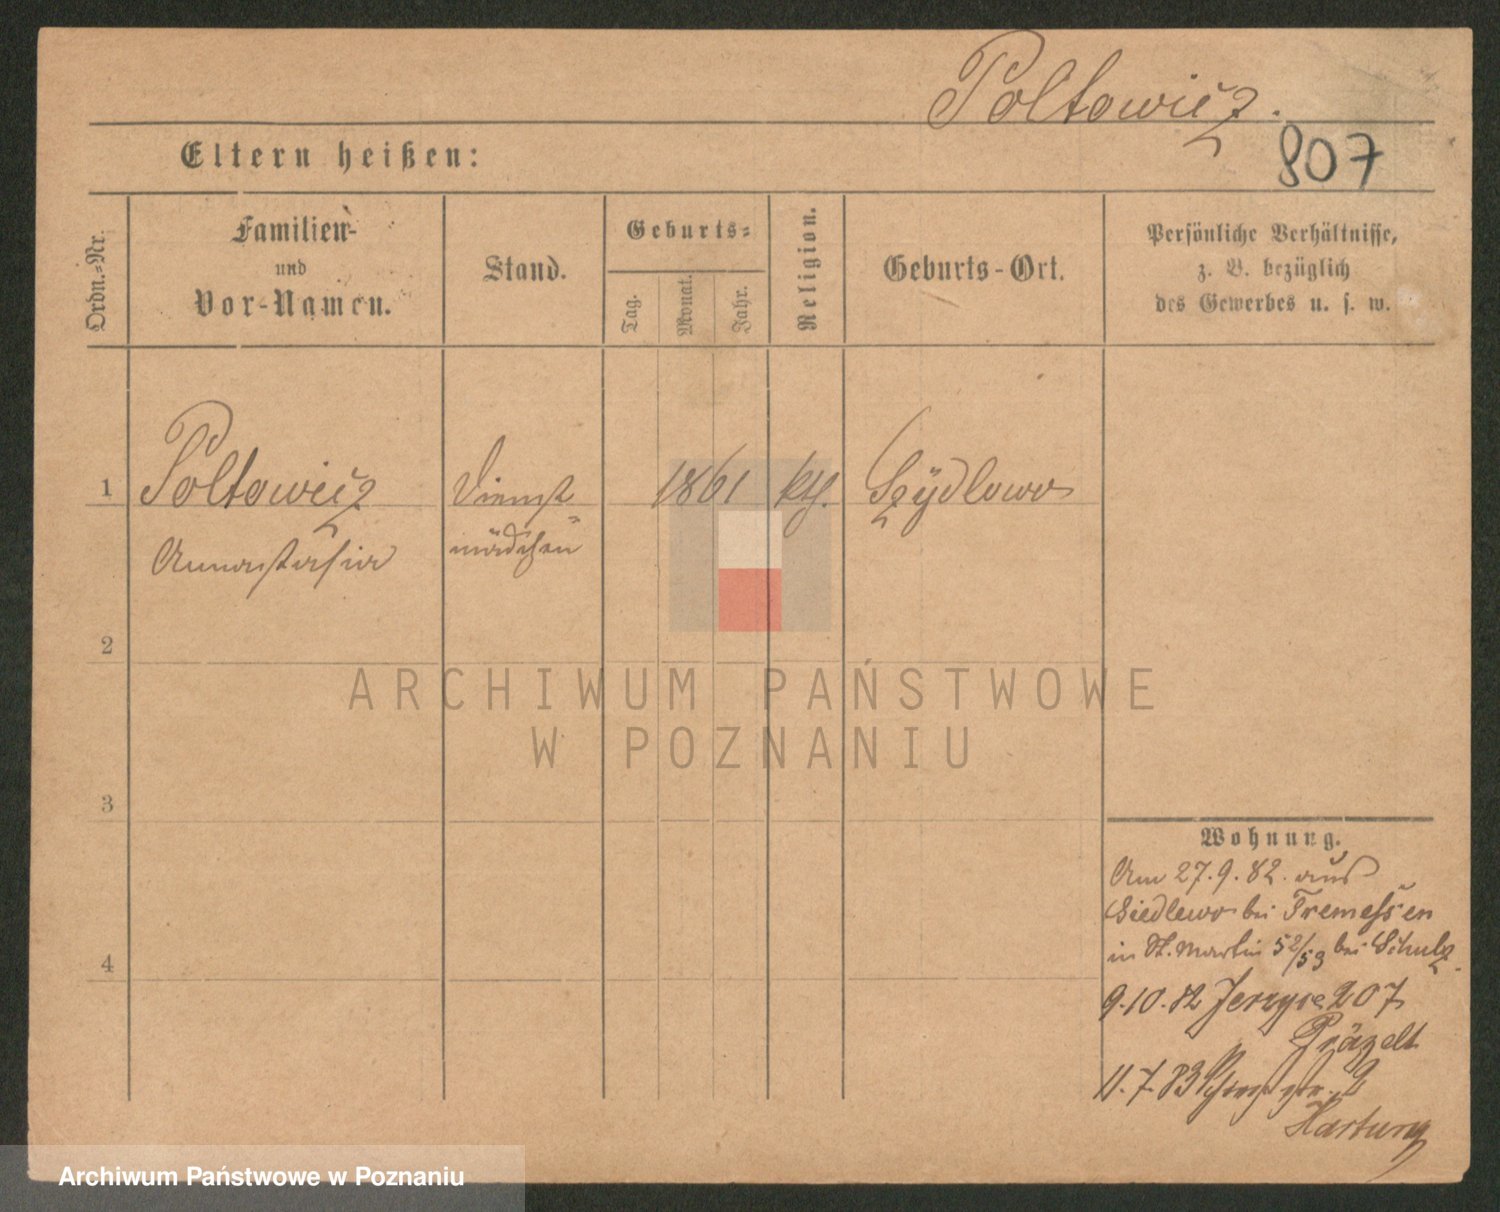 Poltowicz.
807
Eltern heißen:
Ordn.=Nr.
Familien-
und
Vor-Namen.
Stand.
Geburts=
Tag.
Monat.
Jahr.
Religion.
Geburts-Ort.
Persönliche Verhältnisse,
z. B. bezüglich
des Gewerbes u. s. w.
1
Poltowicz
Dienst
1861
kth.
Szydlowo
Annastasia
mädchen
2
ARCHIWUM PAŃSTWOWE
W POZNANIU
3
4
Wohnung.
Am 27.9.82. aus
Siedlewo bei Tremessen
in St. Martin 52/53 bei Schulz.
9.10.82 207
11.7.83 2
Hartung
Archiwum Państwowe w Poznaniu